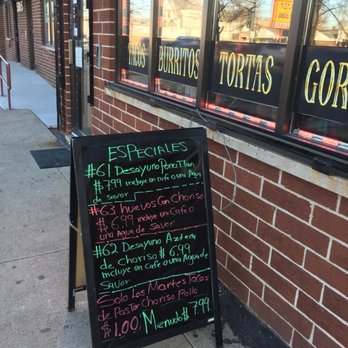 TACOS
BURRITOS
TORTAS
GOR
ESPECIALES
#61 Desayuno Penca Tlan
$7.99 incluye un cafe o una Agua
de savor
#63 huevos Con Choriso
$6.99 incluye un Cafe o
una Agua de savor
#62 Desayuno Azteca
de Choriso $6.99
incluye un Cafe o una Agua de
Savor
Solo Los Martes Tacos
de Pastor Choriso Pollo
$1.00 Menudo $7.99